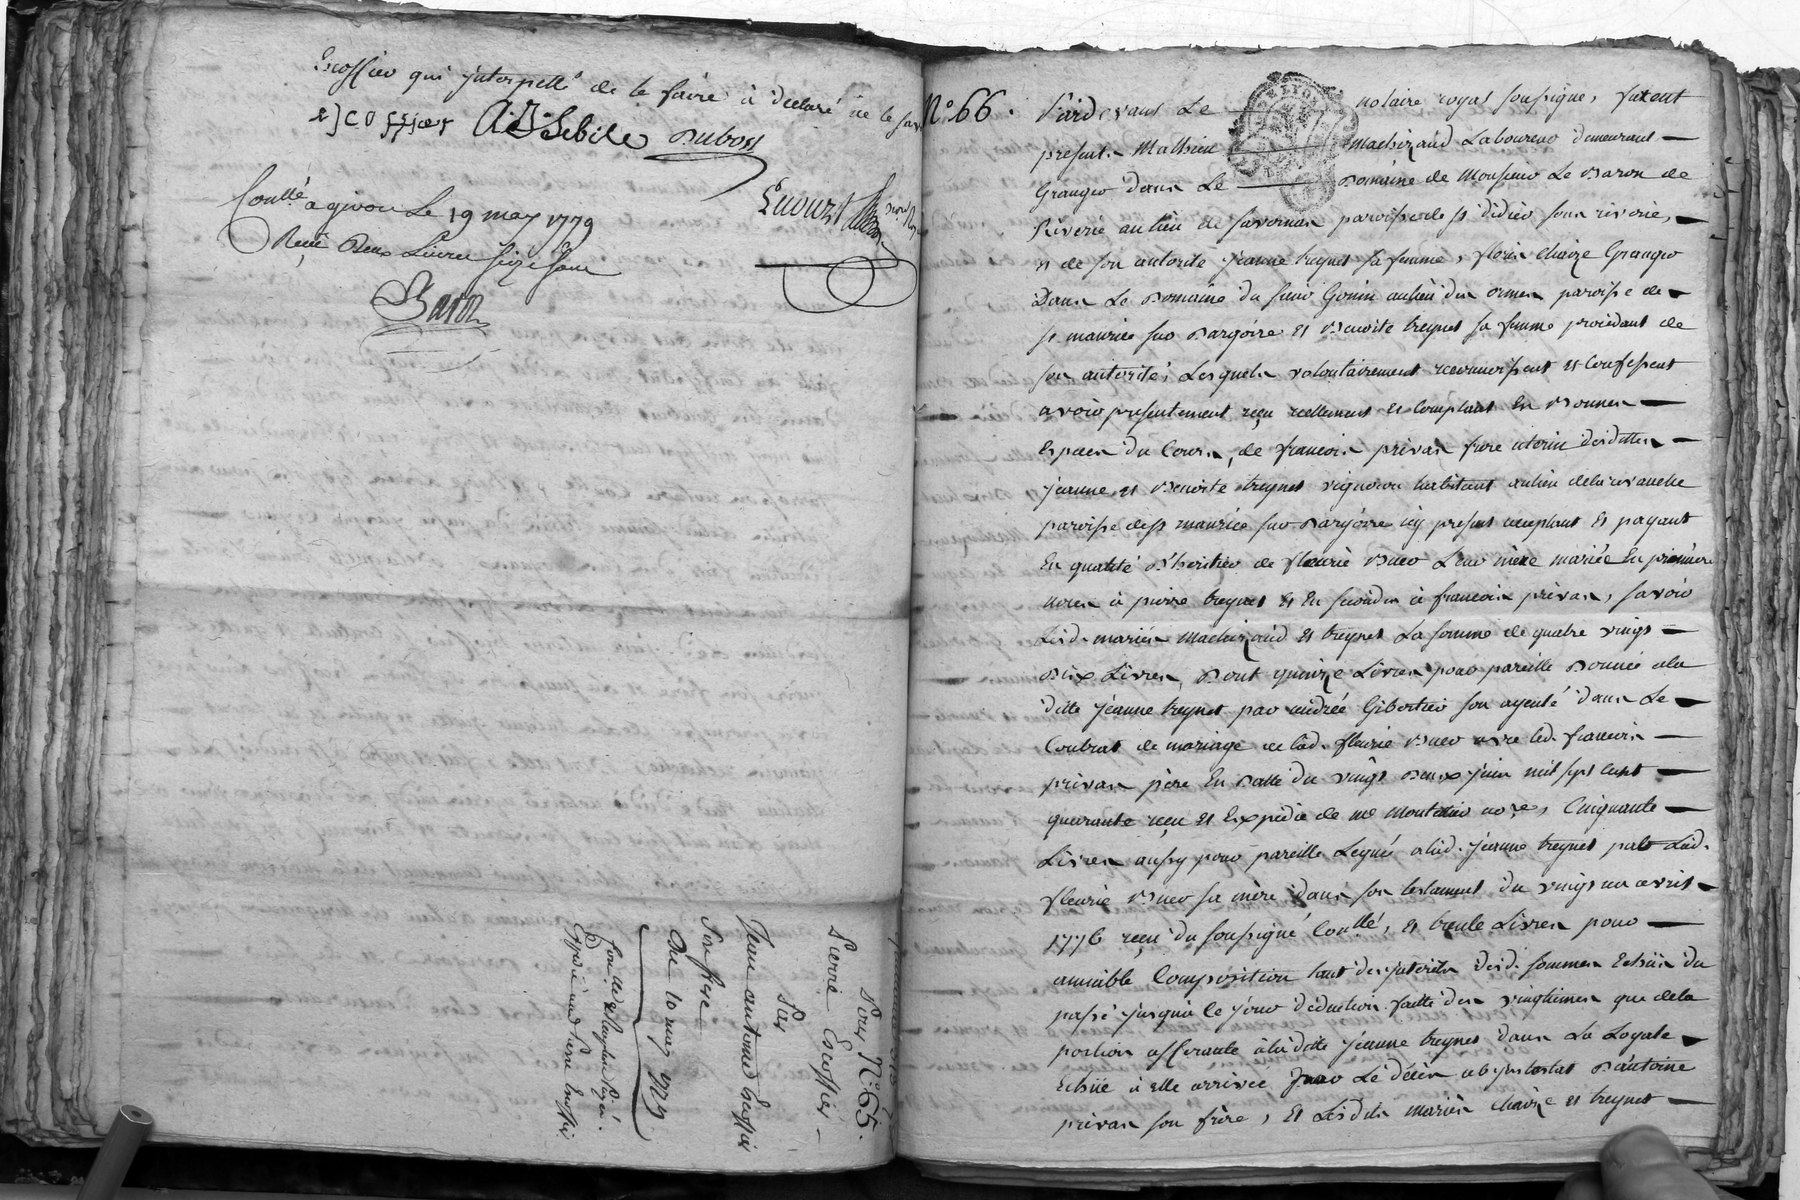 Escoffier qui interpellé de le faire a déclaré ne le sav
escoffier A. Sebile Dubost
Enouzt
Conllé a givor Le 19 may 1779
Reçu Deux Livres seize sous
Baron
Pour N.° 65.
Pierre Escoffier
Par
Jean antoine Escoffier
Son frere
Du 10 may 1779
Expedié aud Pierre Escoffier
N.° 66.
Pardevant Le notaire royal soussigné, furent
presents Mathieu Machizaud Laboureur demeurant
Granger dans Le Domaine de Monsieur Le Baron de
Riverie au lieu de savornas paroisse de st didier sous riverie,
et de son autorité jeanne treynet sa femme, floris Chaize Granger
Dans Le Domaine du sieur Gonin au lieu des ormes paroisse de
st maurice sur Dargoire et Benoite treynet sa femme procedant de
son autorité, Lesquels volontairement reconnoissent et Confessent
avoir presentement reçu reellement et Comptant En Bonnes
Espèces du Cours, de françois privas frere uterin desdittes
jeanne et Benoite treynet vigneron habitant au lieu de la revanche
paroisse de st maurice sur Dargoire icy present acceptant et payant
En qualité D'heritier de fleurie Buer Leur mère mariée En premières
noces à pierre treynet et En secondes à françois privas, savoir
Lesd. mariés Machizaud et treynet La somme de quatre vingt
Dix Livres, Dont quinze Livres pour pareille Donnée a la
ditte jeanne treynet par andrée Gibertier son ayeule dans Le
Contrat de mariage de lad. fleurie Buer avec led. françois
privas père En Datte du vingt Deux juin mil sept cent
quarante reçu et Expedié de me Montellier no.re, Cinquante
Livres aussy pour pareille Leguée a lad. jeanne treynet par Lad.
fleurie Buer sa mère dans son testament du vingt un avril
1776 reçu du soussigné Conllé, et trente Livres pour
amiable Composition tant des interets desd. sommes Echus du
passé jusqu'à ce jour déduction faitte des vingtiemes que de la
portion afférante à la ditte jeanne treynet dans La Loyale
Echüe à elle arrivée par Le décès ab intestat D'antoine
privas son frère, et Lesdits mariés Chaize et treynet